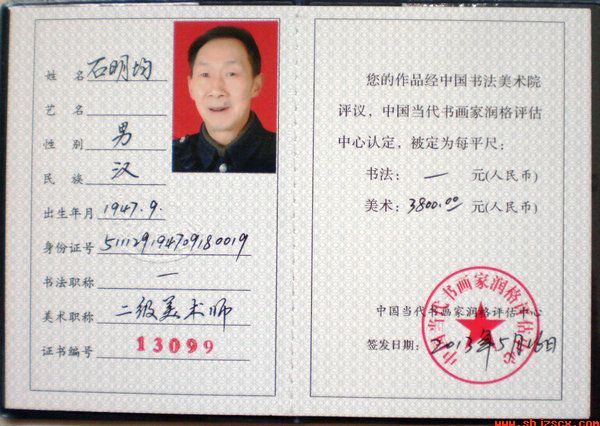 姓名 石明均
艺名
性别 男
民族 汉
出生年月 1947.9.
身份证号 511129194709180019
书法职称 一
美术职称 二级美术师
证书编号 13099
您的作品经中国书法美术院
评议，中国当代书画家润格评估
中心认定，被定为每平尺：
书法： 一 元(人民币)
美术： 3800.00 元(人民币)
中国当代书画家润格评估中心
签发日期： 2013年5月16日
中国当代书画家润格评估中心
www.shjzscx.com